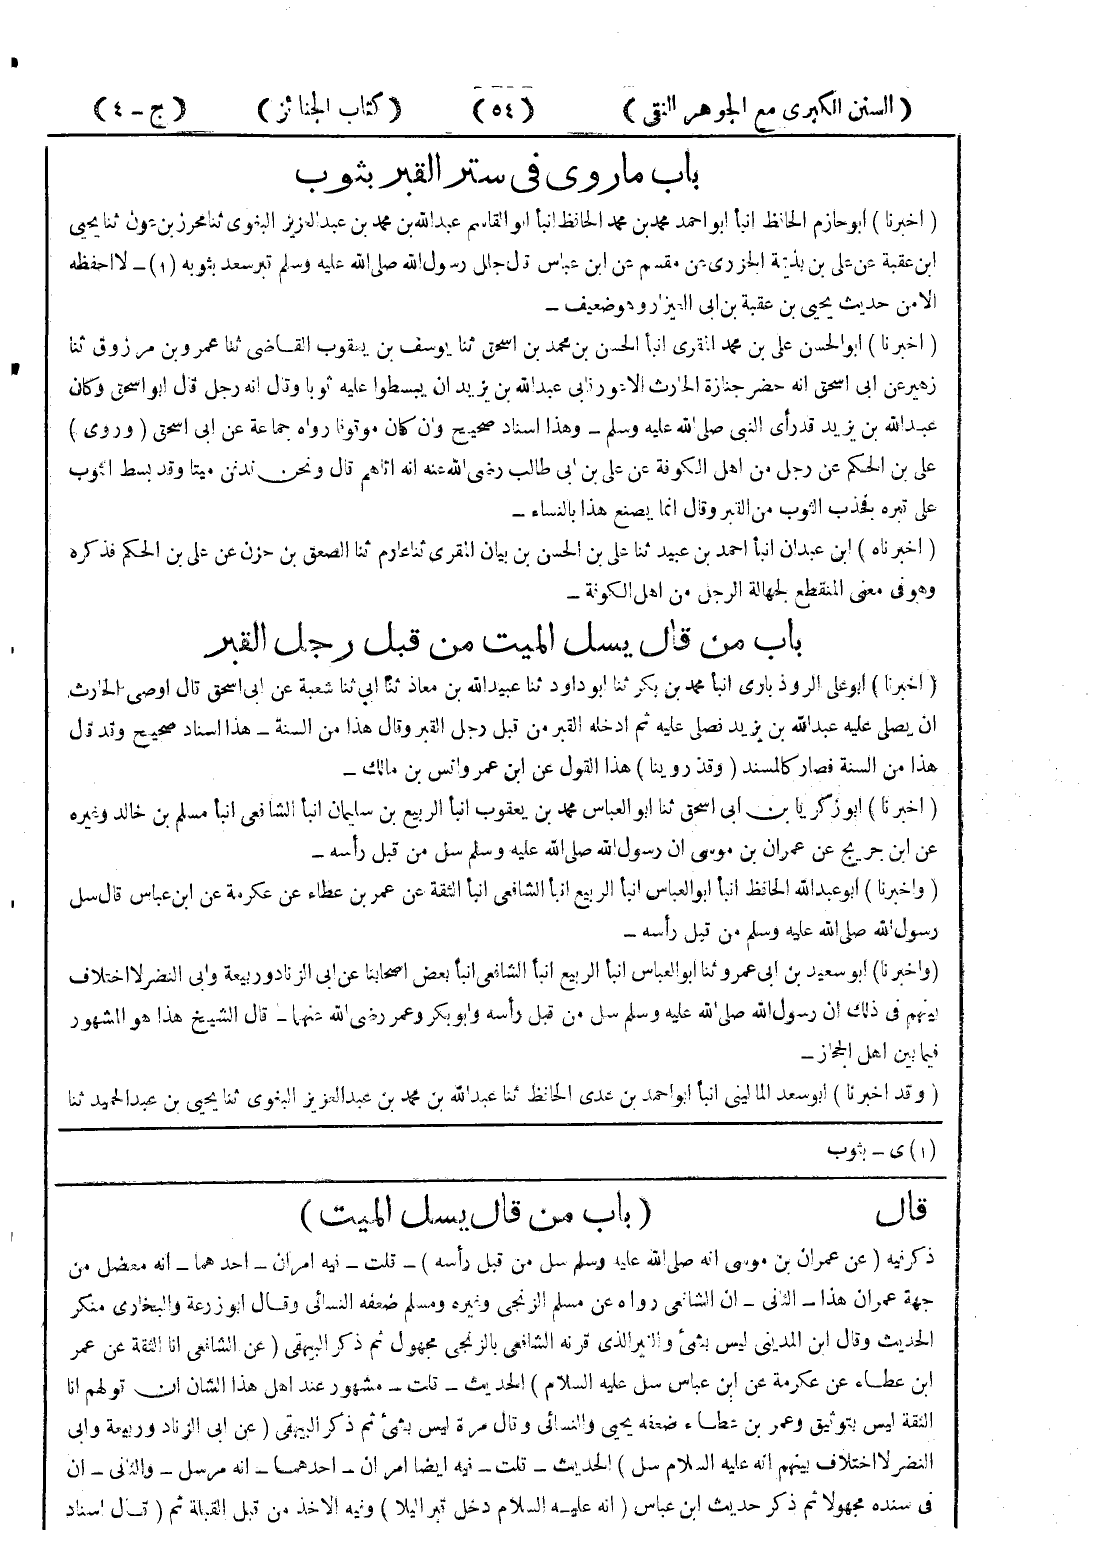 ( السنن الكبرى مع الجوهر النقى ) ( ٥٤ ) ( كتاب الجنائز ) ( ج – ٤ )
باب ما روى فى ستر القبر بثوب
( اخبرنا ) أبو حازم الحافظ انبأ ابو احمد محمد بن محمد الحافظ انبأ ابو القاسم عبدالله بن محمد بن عبدالعزيز البغوى ثنا محرز بن عون ثنا يحيى
ابن عقبة عن على بن بذيمة الجزرى عن مقسم عن ابن عباس قال جلل رسول الله صلى الله عليه وسلم قبر سعد بثوبه (١) – لا احفظه
الا من حديث يحيى بن عقبة بن ابى العيزار وهو ضعيف –
( اخبرنا ) ابو الحسن على بن محمد المقرى انبأ الحسن بن محمد بن اسحق ثنا يوسف بن يعقوب القاضى ثنا عمرو بن مرزوق ثنا
زهير عن ابى اسحق انه حضر جنازة الحارث الاعور فابى عبدالله بن يزيد ان يبسطوا عليه ثوبا وقال انه رجل قال ابو اسحق وكان
عبدالله بن يزيد قد رأى النبى صلى الله عليه وسلم – وهذا اسناد صحيح وان كان موقوفا رواه جماعة عن ابى اسحق ( وروى )
على بن الحكم عن رجل من اهل الكوفة عن على بن ابى طالب رضى الله عنه انه اتاهم قال ونحن ندفن ميتا وقد بسط الثوب
على قبره فجذب الثوب من القبر وقال انما يصنع هذا بالنساء –
( اخبرناه ) ابن عبدان انبأ احمد بن عبيد ثنا على بن الحسن بن بيان المقرى ثنا عارم ثنا الصعق بن حزن عن على بن الحكم فذكره
وهو فى معنى المنقطع لجهالة الرجل من اهل الكوفة –
باب من قال يسل الميت من قبل رجل القبر
( اخبرنا ) أبو على الروذبارى انبأ محمد بن بكر ثنا ابو داود ثنا عبيدالله بن معاذ ثنا أبي ثنا شعبة عن ابى اسحق قال اوصى الحارث
ان يصلى عليه عبدالله بن يزيد فصلى عليه ثم ادخله القبر من قبل رجل القبر وقال هذا من السنة – هذا اسناد صحيح وقد قال
هذا من السنة فصار كالمسند ( وقد روينا ) هذا القول عن ابن عمر وانس بن مالك –
( اخبرنا ) ابو زكريا بن ابى اسحق ثنا ابو العباس محمد بن يعقوب انبأ الربيع بن سليمان انبأ الشافعى انبأ مسلم بن خالد وغيره
عن ابن جريج عن عمران بن موسى ان رسول الله صلى الله عليه وسلم سل من قبل رأسه –
( واخبرنا ) أبو عبدالله الحافظ انبأ ابو العباس انبأ الربيع انبأ الشافعى انبأ الثقة عن عمر بن عطاء عن عكرمة عن ابن عباس قال سل
رسول الله صلى الله عليه وسلم من قبل رأسه –
(واخبرنا) ابو سعيد بن ابى عمرو ثنا ابو العباس انبأ الربيع انبأ الشافعى انبأ بعض اصحابنا عن ابى الزناد وربيعة وابى النضر لا اختلاف
بينهم فى ذلك ان رسول الله صلى الله عليه وسلم سل من قبل رأسه وابو بكر وعمر رضى الله عنهما – قال الشيخ هذا هو المشهور
فيما بين اهل الحجاز –
( وقد اخبرنا ) ابو سعد المالينى انبأ ابو احمد بن عدى الحافظ ثنا عبدالله بن محمد بن عبدالعزيز البغوى ثنا يحيى بن عبدالحميد ثنا
(١) ى – بثوب
قال ( باب من قال يسل الميت )
ذكر فيه ( عن عمران بن موسى انه صلى الله عليه وسلم سل من قبل رأسه ) – قلت – فيه امران – احدهما – انه معضل من
جهة عمران هذا – الثانى – ان الشافعى رواه عن مسلم الزنجى وغيره ومسلم ضعفه النسائى وقال ابو زرعة والبخارى منكر
الحديث وقال ابن المدينى ليس بشئ والغير الذى قرنه الشافعى بالزنجى مجهول ثم ذكر البيهقى ( عن الشافعى انا الثقة عن عمر
ابن عطاء عن عكرمة عن ابن عباس سل عليه السلام ) الحديث – قلت – مشهور عند اهل هذا الشان ان قولهم انا
الثقة ليس بتوثيق وعمر بن عطاء ضعفه يحيى والنسائى وقال مرة ليس بشئ ثم ذكر البيهقى ( عن ابى الزناد وربيعة وابى
النضر لا اختلاف بينهم انه عليه السلام سل ) الحديث – قلت – فيه ايضا امران – احدهما – انه مرسل – والثانى – ان
فى سنده مجهولا ثم ذكر حديث ابن عباس ( انه عليه السلام دخل قبر اليلا ) وفيه الاخذ من قبل القبلة ثم ( قال اسناد